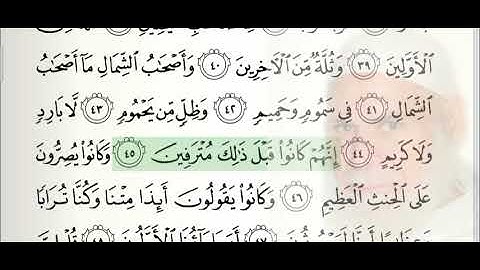 ٱلْأَوَّلِينَ ٣٩ وَثُلَّةٌ مِّنَ ٱلْأٓخِرِينَ ٤٠ وَأَصْحَٰبُ ٱلشِّمَالِ مَآ أَصْحَٰبُ
ٱلشِّمَالِ ٤١ فِى سَمُومٍ وَحَمِيمٍ ٤٢ وَظِلٍّ مِّن يَحْمُومٍ ٤٣ لَّا بَارِدٍ
وَلَا كَرِيمٍ ٤٤ إِنَّهُمْ كَانُوا۟ قَبْلَ ذَٰلِكَ مُتْرَفِينَ ٤٥ وَكَانُوا۟ يُصِرُّونَ
عَلَى ٱلْحِنثِ ٱلْعَظِيمِ ٤٦ وَكَانُوا۟ يَقُولُونَ أَئِذَا مِتْنَا وَكُنَّا تُرَابًا